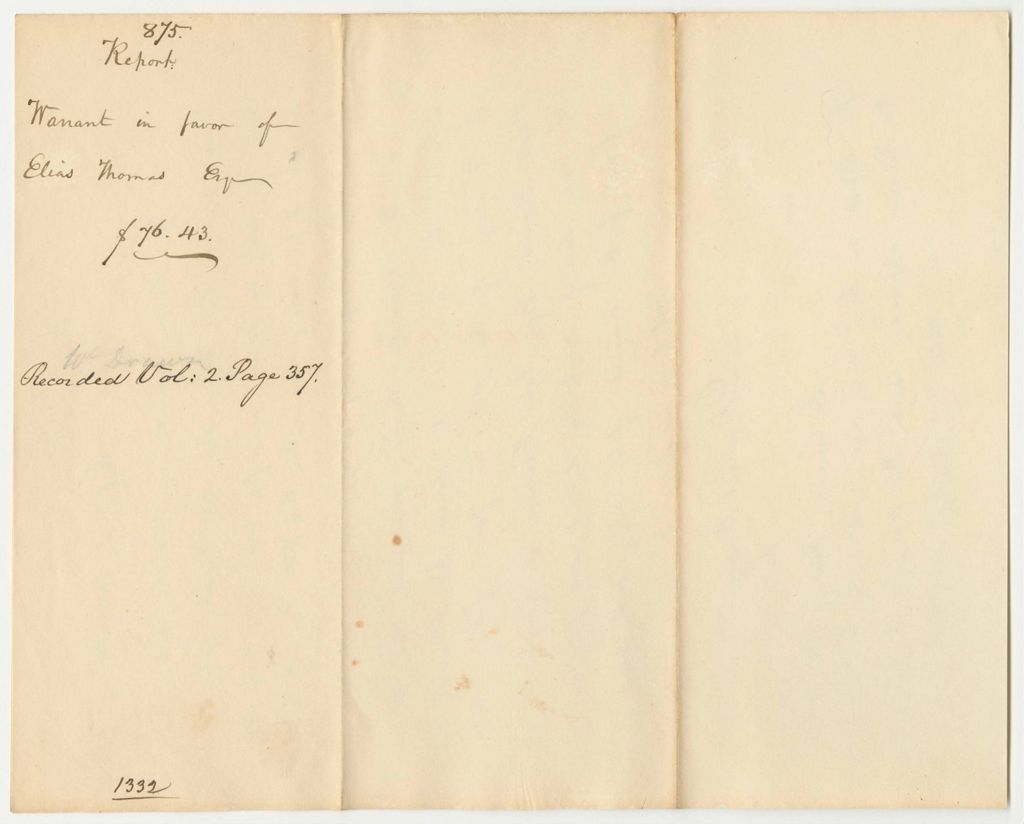 875.
Report.
Warrant in favor of
Elias Thomas Esq
$ 76. 43.
Wt Drawn
Recorded Vol: 2. Page 357.
1332